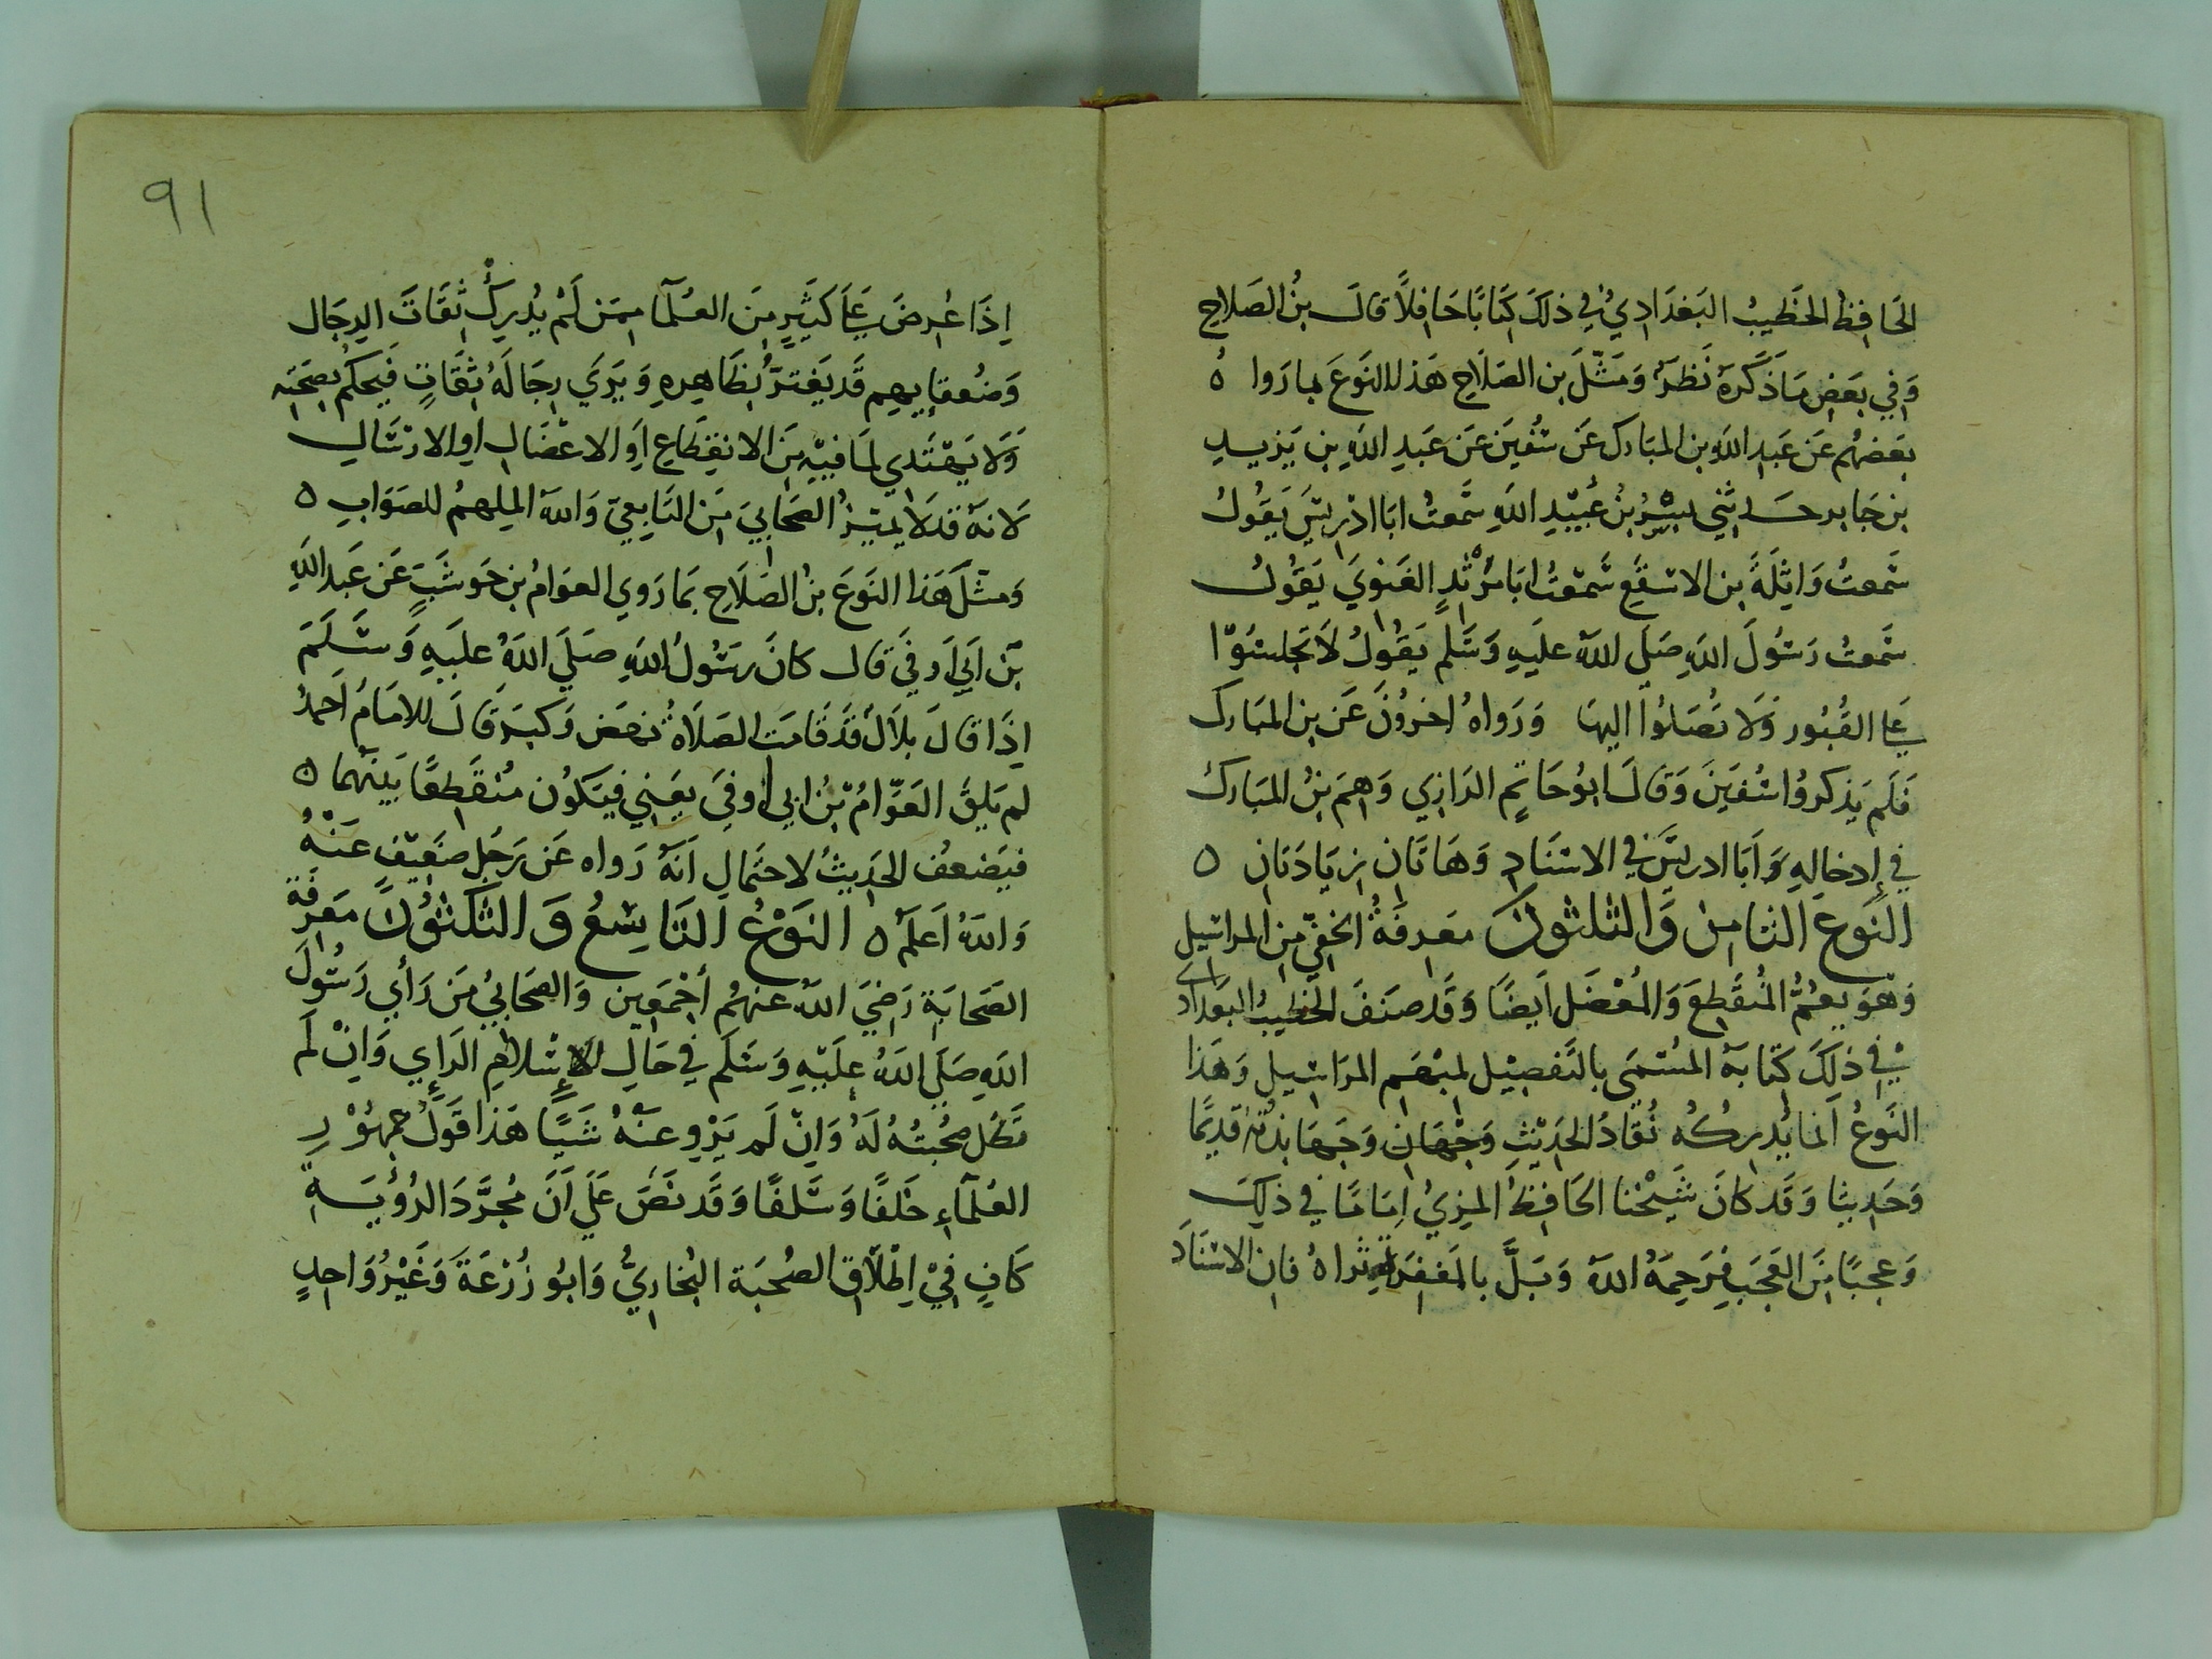 الحافظ الخطيب البغدادي في ذلك كتابا حافلا قال بن الصلاح
وفي بعض ما ذكره نظر ومثل بن الصلاح هذا النوع بما روا ه
بعضهم عن عبد الله بن المبارك عن سفين عن عبد الله بن يزيد
بن جابر حدثني بسر بن عبيد الله سمعت ابا ادريس يقول
سمعت واثلة بن الاسقع سمعت ابا مرثد الغنوي يقول
سمعت رسول الله صلي الله عليه وسلم يقول لا تجلسوا
علي القبور ولا تصلوا اليها ورواه اخرون عن بن المبارك
فلم يذكروا سفين وقال ابو حاتم الرازي وهم بن المبارك
في إدخاله وابا ادريس في الاسناد وهاتان زيادتان ه
النوع الثامن والثلثون معرفة الخفي من المراسيل
وهو يعم المنقطع والمعضل ايضا وقد صنف الخطيب البغدادي
في ذلك كتابه المسمي بالتفصيل لمبهم المراسيل وهذا
النوع انما يدركه نقاد الحديث وجهابذته قديما
وحديثا وقد كان شيخنا الحافظ المزي اماما في ذلك
وعجبا من العجب فرحمه الله وبل بالمغفرة ثراه فان الاسناد
٩١
اذا عرض علي كثير من العلما ممن لم يدرك ثقات الرجال
وضعفايهم قد يغتر بظاهره ويري رجاله ثقات فيحكم بصحته
ولا يهتدي لما فيه من الانقطاع او الاعضال او الارسال
لانه قد لا يميز الصحابي من التابعي والله الملهم للصواب ه
ومثل هذا النوع بن الصلاح بما روي العوام بن حوشب عن عبد الله
بن ابي اوفي قال كان رسول الله صلي الله عليه وسلم
اذا قال بلال قد قامت الصلاة نهض وكبر قال الامام احمد
لم يلق العوام بن ابي اوفي يعني فيكون منقطعا بينهما ه
فيضعف الحديث لاحتمال انه رواه عن رجل ضعيف عنه
والله اعلم ه النوع التاسع والثلثون معرفة
الصحابة رضي الله عنهم أجمعين والصحابي من رأي رسول
الله صلي الله عليه وسلم في حال الإسلام الراي وان لم
تطل صحبته له وان لم يرو عنه شيا هذا قول جمهور
العلماء خلفا وسلفا وقد نص علي ان مجرد الرؤية
كاف في اطلاق الصحبة البخاري وابو زرعة وغير واحد